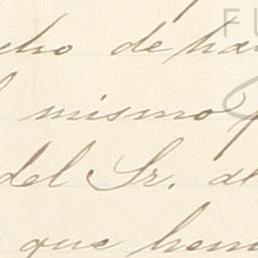 cho de ha
mismo
del Sr. d
que hem